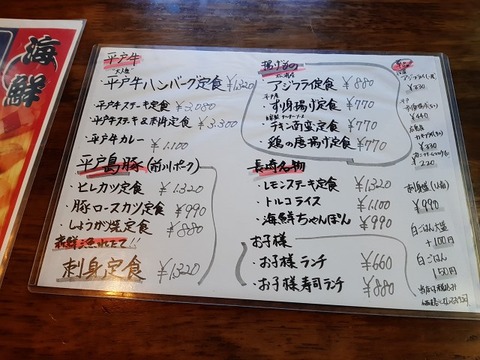 海鮮
平戸牛
・平戸牛ハンバーグ定食 ¥1,320
・平戸牛ステーキ定食 ¥2,080
・平戸牛カレー ¥1,100
平戸島豚(前川ポーク)
・ヒレカツ定食 ¥1,320
・豚ロースカツ定食 ¥990
・しょうが焼定食 ¥880
刺身定食 ¥1,320
揚げもの
・アジフライ定食 ¥880
・すり身揚げ定食 ¥770
・チキン南蛮定食 ¥770
・鶏の唐揚げ定食 ¥770
長崎名物
・レモンステーキ定食 ¥1,320
・トルコライス ¥1,100
・海鮮ちゃんぽん ¥990
お子様
・お子様ランチ ¥660
・お子様寿司ランチ ¥880
¥330
¥440
¥330
¥220
¥990
白ごはん大盛
+100円
白ごはん
150円